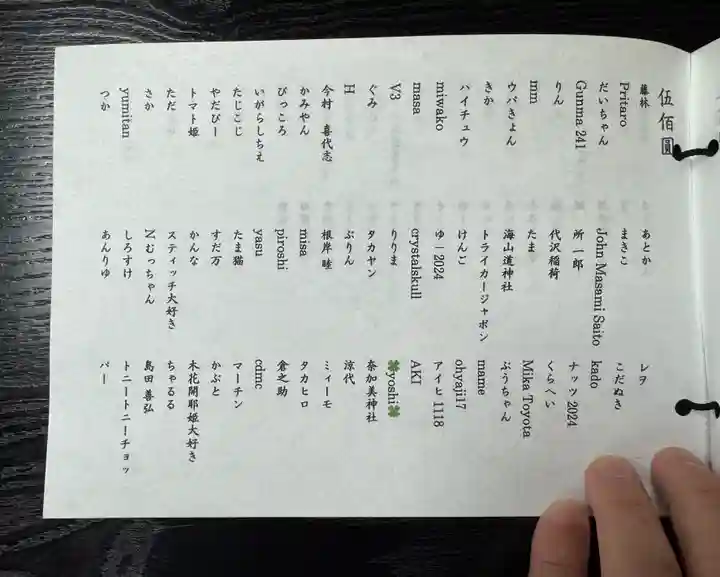 伍佰圓
藤林 あとか レヲ
Pritaro まきこ こだぬき
だいちゃん John Masami Saito kado
Gunma 241 所 一郎 ナッツ 2024
りん 代沢稲荷 くらへい
mm たま Mika Toyota
ウパきょん 海山道神社 ぞうちゃん
きか トライカージャポン mame
ハイチュウ けんこ ohyaji17
miwako ゆー2024 アイヒ 1118
masa crystalskull AKI
V3 りりま 🍀yoshi🍀
ぐみ タカヤン 奈加美神社
H ぷりん 涼代
今村 喜代志 根岸睦 ミィーモ
かみやん misa タカヒロ
ぴっころ piroshi 倉之助
いがらしちえ yasu cdmc
たじこじ たま猫 マーチン
やだぴー すだ万 かぶと
トマト姫 かんな 木花開耶姫大好き
ただ スティッチ大好き ちゃるる
さか Nむっちゃん 島田善弘
yumitan しろすけ トニートニーチョッ
つか あんりゆ パー